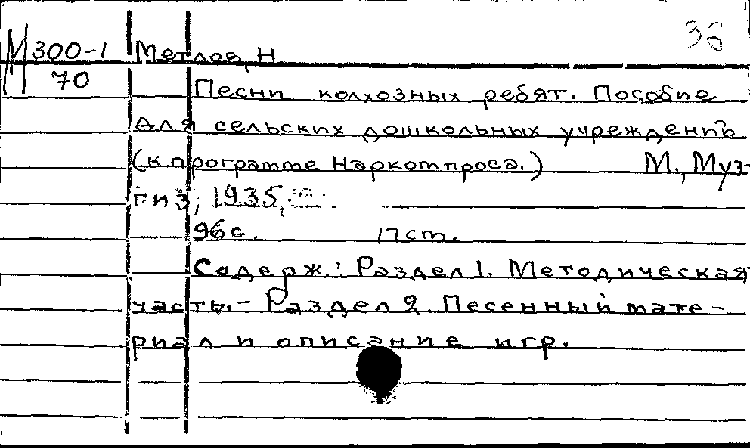 М300-1 Метлов, Н. 36
70
Песни колхозных ребят. Пособие
для сельских дошкольных учреждений
(к программе Наркомпроса.) М., Муз-
гиз, 1935,
96с. 17ст.
Содерж.: Раздел 1. Методическая
часть.- Раздел 2. Песенный мате-
риал и описание игр.